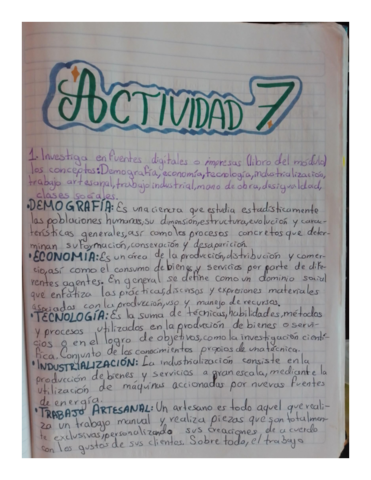 ACTIVIDAD 7
1. Investiga en fuentes digitales o impresas (libro del módulo)
los conceptos: Demografía, economía, tecnología, industrialización,
trabajo artesanal, trabajo industrial, mano de obra, desigualdad de
clases sociales.
DEMOGRAFÍA: Es una ciencia que estudia estadísticamente
las poblaciones humanas, su dimensión, estructura, evolución y carac-
terísticas generales, así como los procesos concretos que deter-
minan su formación, conservación y desaparición.
• ECONOMÍA: Es un área de la producción, distribución y comer-
cio, así como el consumo de bienes y servicios por parte de dife-
rentes agentes. En general se define como un dominio social
que enfatiza las prácticas, discursos y expresiones materiales
asociadas con la producción, uso y manejo de recursos.
• TECNOLOGÍA: Es la suma de técnicas, habilidades, métodos
y procesos utilizados en la producción de bienes o servi-
cios o en el logro de objetivos, como la investigación cientí-
fica. Conjunto de los conocimientos propios de una técnica.
• INDUSTRIALIZACIÓN: La industrialización consiste en la
producción de bienes y servicios a gran escala, mediante la
utilización de máquinas accionadas por nuevas fuentes
de energía.
• TRABAJO ARTESANAL: Un artesano es todo aquel que reali-
za un trabajo manual y realiza piezas que son totalmen-
te exclusivas, personalizando sus creaciones, de acuerdo
con los gustos de sus clientes. Sobre todo, el trabajo